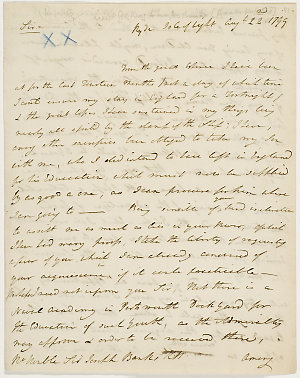 Sir
Ryde Isle of Wight Augt 22d 1799
From the great expence I have been
at for the last twelve months past a day of which time
I can't ensure my stay in England for a fortnight,
& the great losses I have sustained in my things being
nearly all spoil'd by the of the Ship; I have,
among other sacrifices been obliged to take my Son
with me, who I had intended to have left in England
for his Education which must now be supplied
by as good a one, as I can procure for him where
I am going to — Being sensible of your kind inclination
to assist me as much as lies in your Power, of which
I have had many proofs, I take the liberty of requesting
a favor of you which I am already convinced of
your acquiescence if it can be practicable —
perhaps I need not inform you Sir, that there is a
Naval Academy in Portsmouth Dock Yard for
the Education of such Youth, as the Admiralty
may approve & order to be received there,
Rt Honble Sir Joseph Banks, Bt
among